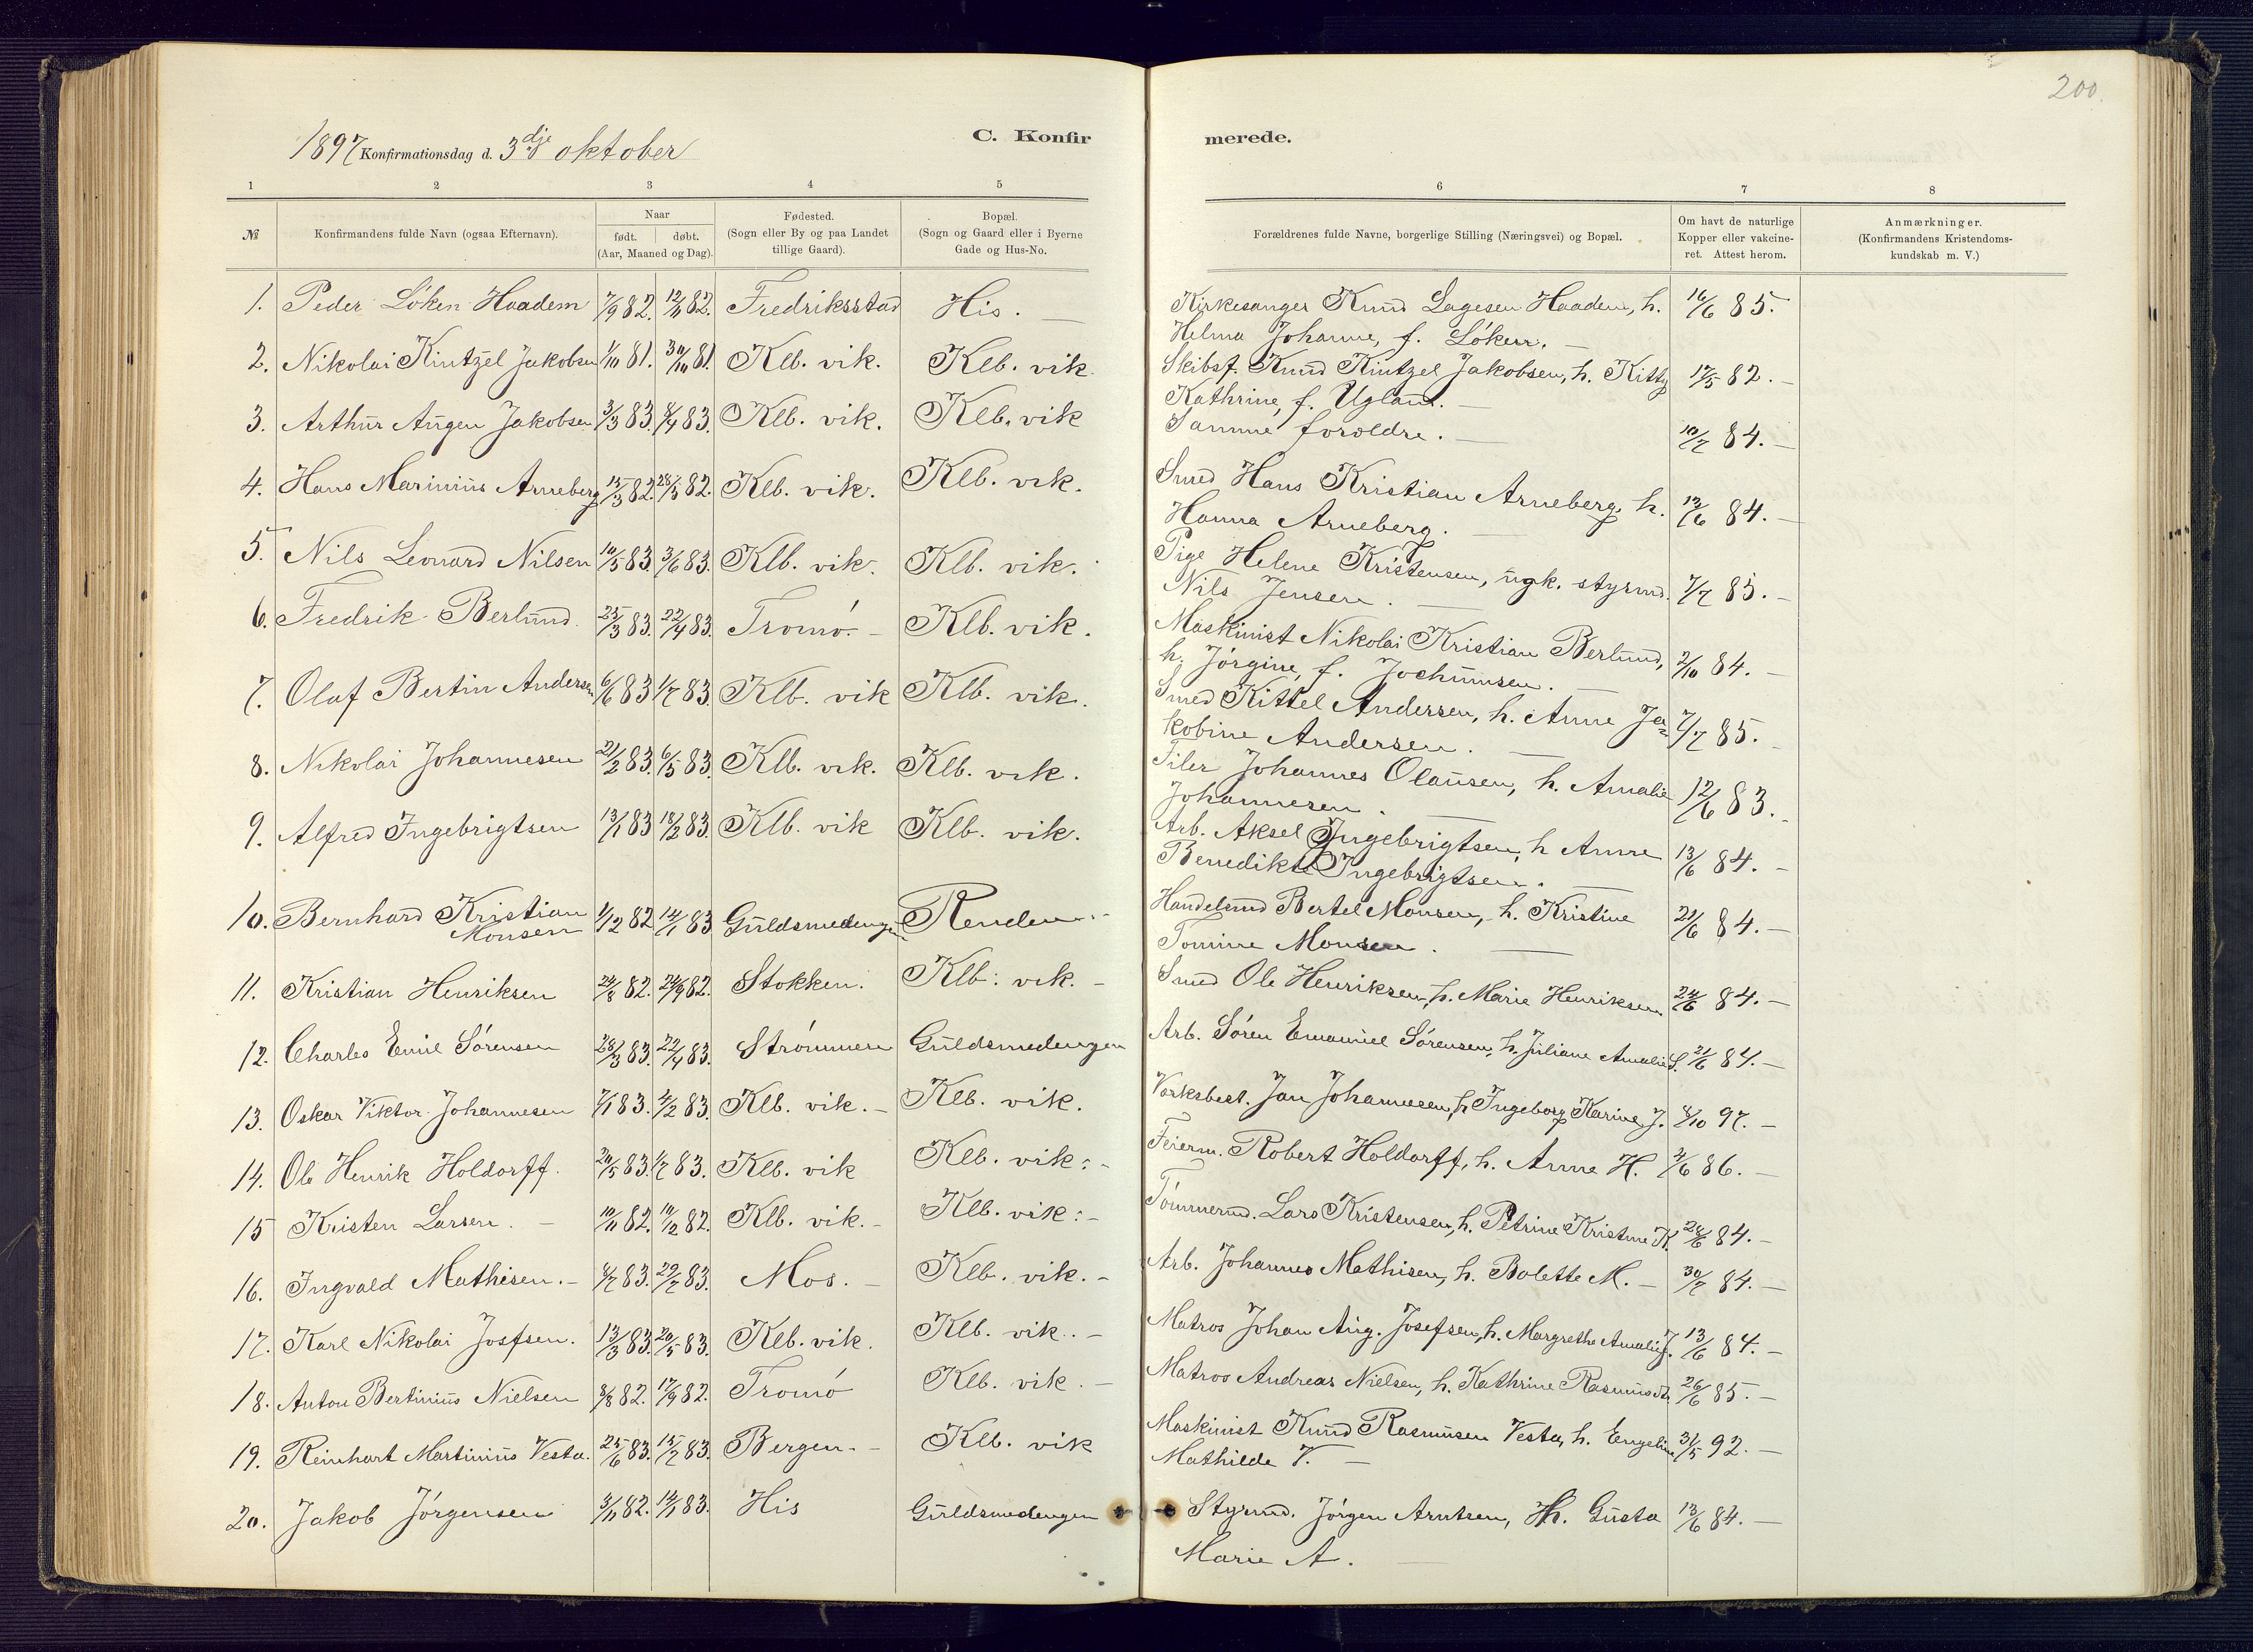 200.
1897 Konfirmationsdag d. 3dje oktober
C. Konfirmerede.
1 2 3 4 5 6 7 8
№ Konfirmandens fulde Navn (ogsaa Efternavn). Naar født. døbt. (Aar, Maaned og Dag). Fødested. (Sogn eller By og paa Landet tillige Gaard). Bopæl. (Sogn og Gaard eller i Byerne Gade og Hus-No. Forældrenes fulde Navne, borgerlige Stilling (Næringsvei) og Bopæl. Om havt de naturlige Kopper eller vakcineret. Attest herom. Anmærkninger. (Konfirmandens Kristendomskundskab m. V.)
1. Peder Löken Haadem 7/9 82. 12/11 82. Fredriksstad His. — Kirkesanger Knud Lagesen Haadem, h. 16/6 85.
Helma Johanne, f. Löken. —
2. Nikolai Kintzel Jakobsen 1/10 81. 30/10 81. Klb. vik. Klb. vik. Skibsf. Knud Kintzel Jakobsen, h. Kitty 17/5 82. —
Kathrine, f. Ugland. —
3. Arthur Augen Jakobsen 3/3 83. 8/4 83. Klb. vik. Klb. vik Samme foroldre. — 10/7 84. —
4. Hans Marinius Arneberg 15/3 82. 28/5 82. Klb. vik. Klb. vik. Smed Hans Kristian Arneberg, h. 13/6 84. —
Hanna Arneberg. —
5. Nils Leonard Nilsen 10/5 83. 3/6 83. Klb. vik. Klb. vik. Pige Helene Kristensen, ugk. styrmd. 7/7 85. —
Nils Jensen. —
6. Fredrik Berlund. 25/3 83. 22/4 83. Tromö. — Klb. vik. Maskinist Nikolai Kristian Berlund, 2/10 84. —
h. Jörgine, f. Jochumsen. —
7. Olaf Bertin Andersen 6/6 83 1/7 83. Klb. vik Klb. vik. Smed Kittel Andersen, h. Anne Ja= 7/7 85. —
kobine Andersen. —
8. Nikolai Johannesen 21/2 83. 6/5 83. Klb. vik. Klb. vik. Filer Johannes Olausen, h. Amalie 12/6 83. —
Johannesen. —
9. Alfred Ingebrigtsen 13/1 83 18/2 83. Klb. vik Klb. vik. Arb. Aksel Ingebrigtsen, h Anne 13/6 84. —
Benedikte Ingebrigtsen. —
10. Bernhard Kristian Monsen 1/12 82 14/1 83 Guldsmedengen Renden. — Handelsmd Bertel Monsen, h. Kristine 21/6 84. —
Tomine Monsen. —
11. Kristian Henriksen 24/8 82. 24/9 82. Stokken. Klb. vik. — Smed Ole Henriksen, h. Marie Henriksen. 24/6 84. —
12. Charles Emil Sörensen 28/3 83. 22/4 83. Strömmen Guldsmedengen Arb. Sören Emanuel Sörensen, h. Juliane Amalie S. 21/6 84. —
13. Oskar Viktor Johannesen 7/1 83. 4/2 83. Klb. vik. — Klb. vik. Vorksbest. Jan Johannesen, h Ingeborg Karine J. 8/10 97. —
14. Ole Henrik Holdorff. 20/5 83. 1/7 83. Klb. vik Klb. vik. — Feierm. Robert Holdorff, h. Anne H. 4/6 86. —
15 Kristen Larsen. — 10/11 82. 10/12 82. Klb. vik. — Klb. vik. — Tömmermd. Lars Kristensen, h. Petrine Kristine K. 28/6 84. —
16. Ingvald Mathisen. — 8/7 83. 29/7 83. Mos. — Klb. vik. — Arb. Johannes Mathisen, h. Bolette M. — 30/7 84. —
17. Karl Nikolai Josfsen. 13/3 83. 20/5 83. Klb. vik. Klb. vik. — Matros Johan Aug. Josefsen, h. Margrethe Amalie J. 13/6 84. —
18. Anton Bertinius Nielsen 8/8 82. 17/9 82. Tromö Klb. vik. — Matros Andreas Nielsen, h. Kathrine Rasmusdt. 26/6 85. —
19. Reinhart Martinius Vesta. 25/6 83. 15/7 83. Bergen. — Klb. vik Maskinist Knud Rasmusen Vesta, h. Engeline 31/5 92. —
Mathilde V. —
20. Jakob Jörgensen 3/11 82. 14/1 83. His Guldsmedengen Styrmd. Jörgen Arntsen, h. Gusta 13/6 84. —
Marie A. —